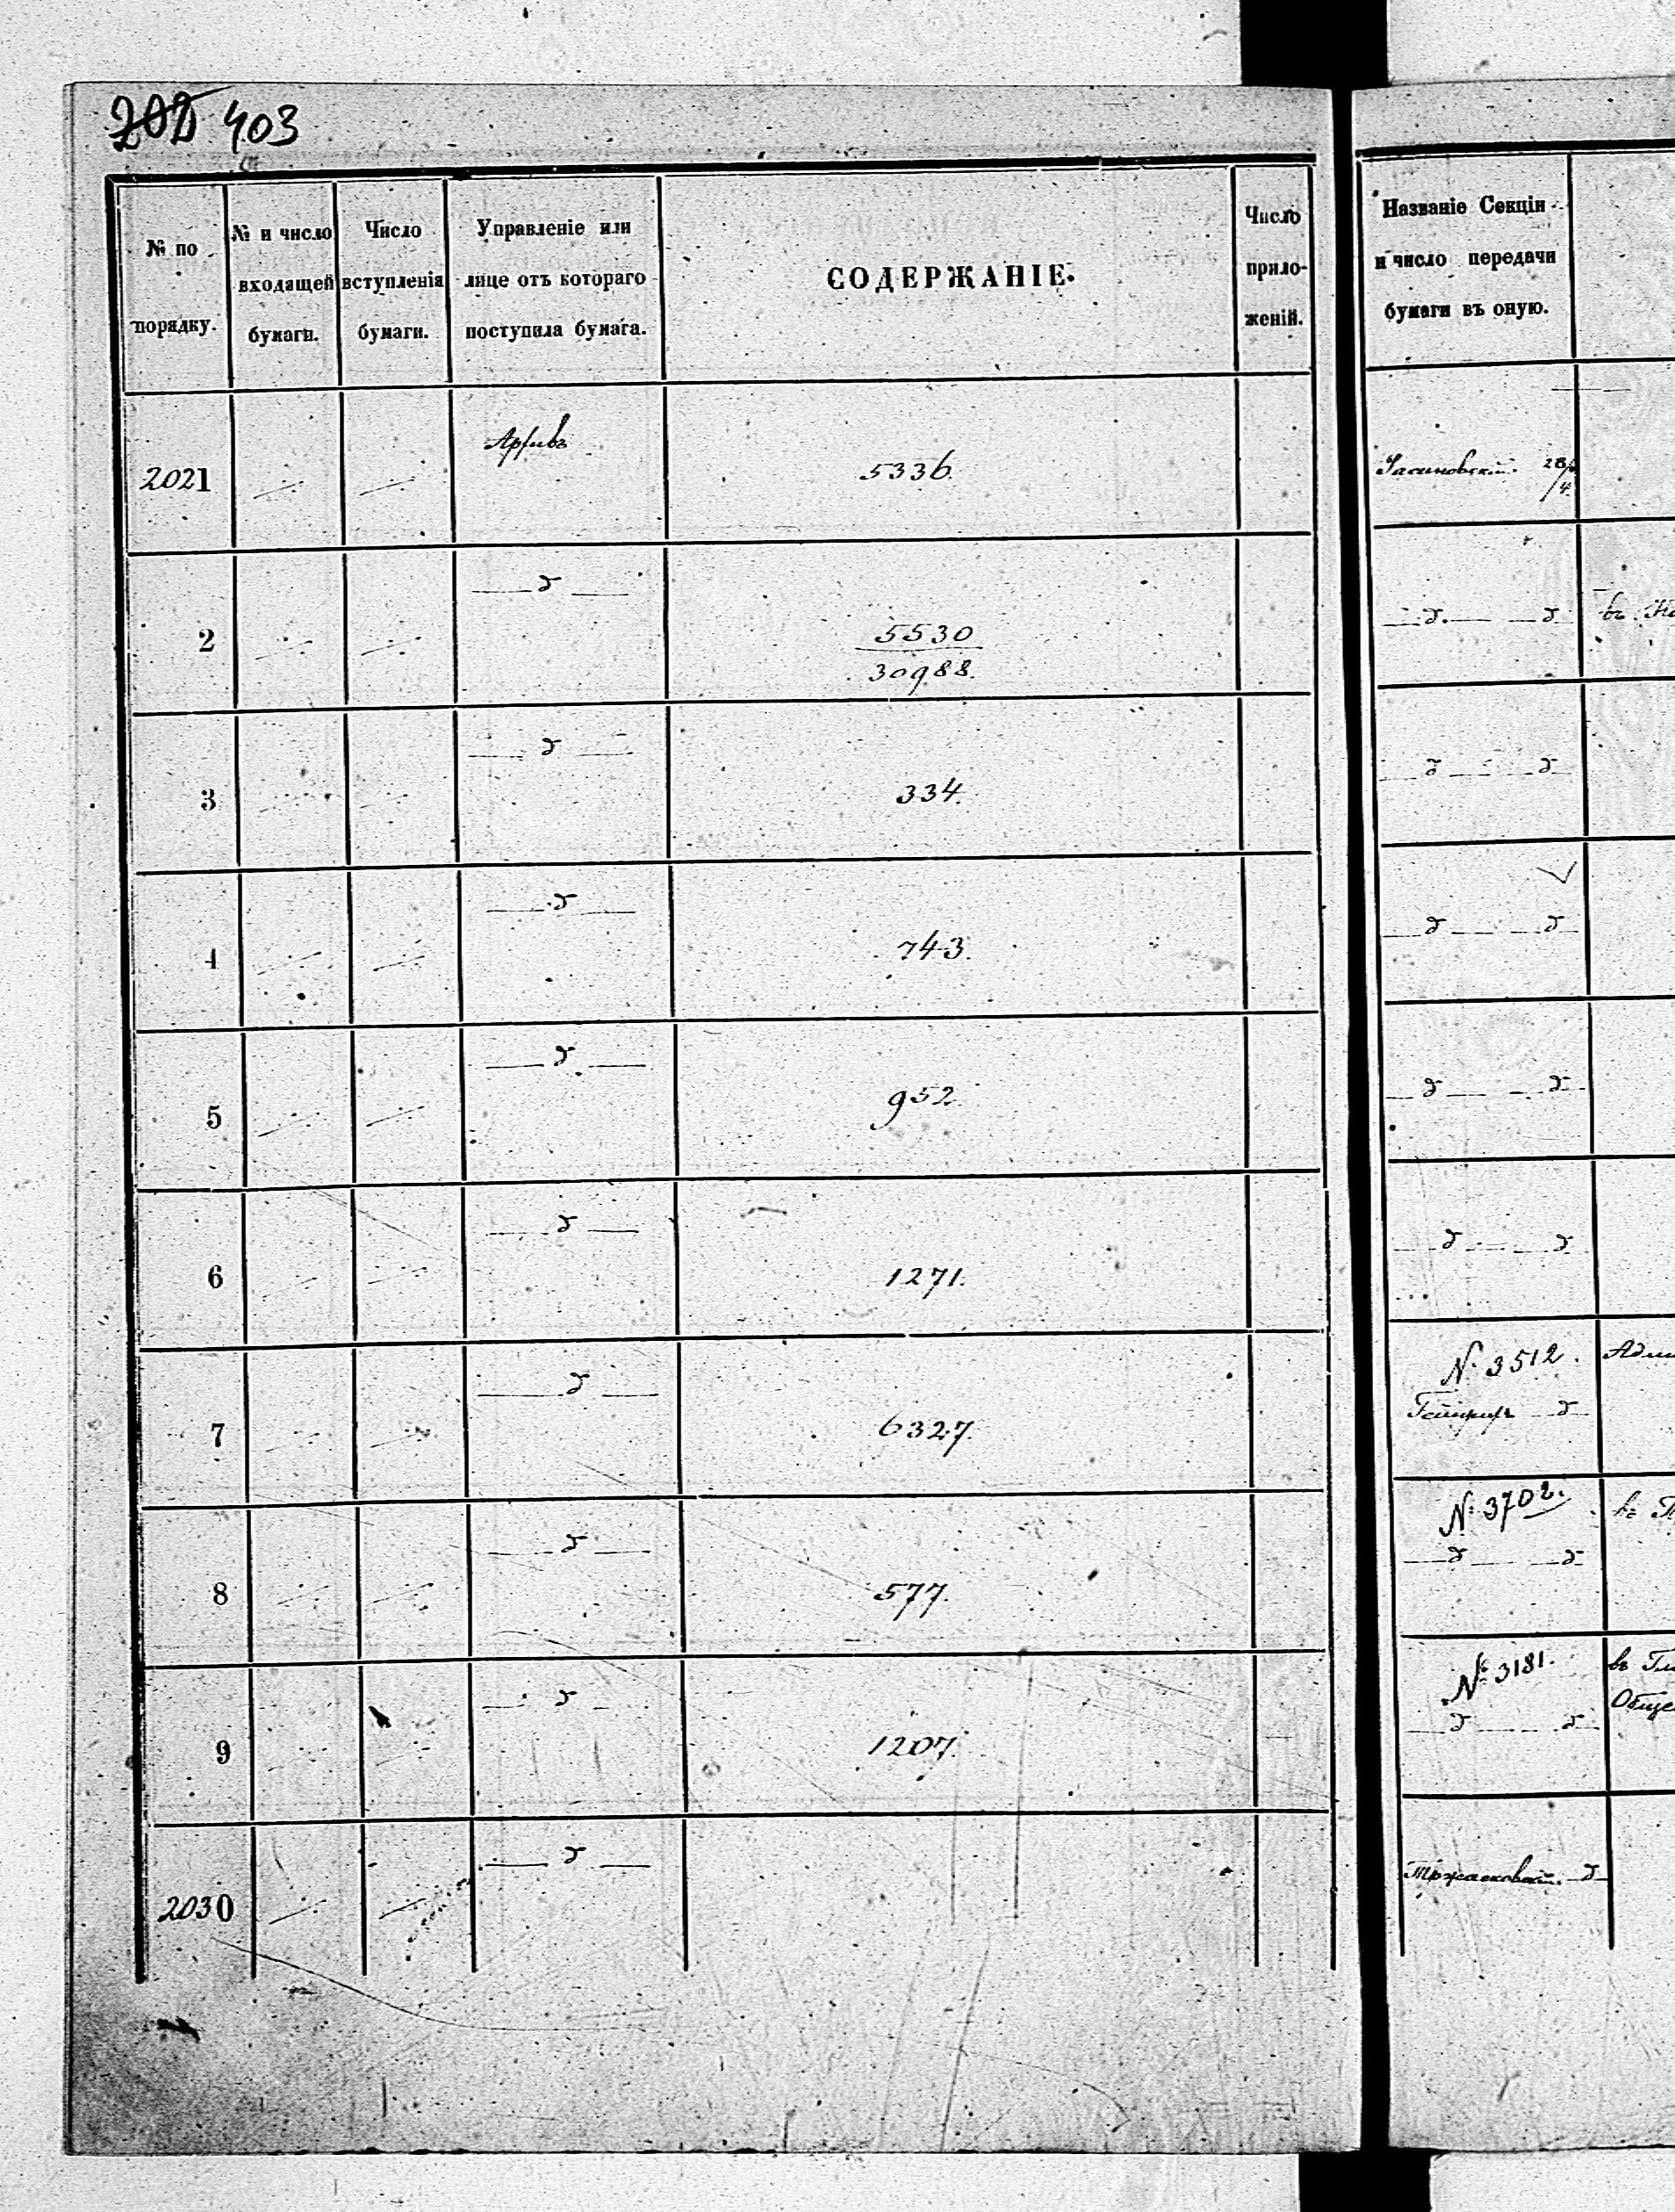 202 403
№ по порядку.
№ и число входящей бумаги.
Число вступленія бумаги.
Управленіе или лице отъ котораго поступила бумага.
СОДЕРЖАНІЕ.
Число приложеній.
Названіе Секціи и число передачи бумаги въ оную.
2021 Архивъ 5336. 28/4.
2 —д— 5530
30988.
—д— —д
въ
3 —д— 334. —д— д
4 —д— 743. —д— —д
5 —д— 952. —д— —д
6 —д— 1271. —д— —д
7 —д— 6327. № 3512.
—д
8 —д— 577. № 3702.
—д— —д
9 —д— 1207. № 3181.
въ
—д— —д
2030 —д— —д